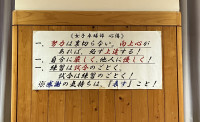 《女子卓球部 心得》
一、努力は裏切らない。向上心が
あれば、必ず上達する！
一、自分に厳しく、他人に優しく！
一、練習は試合のごとく、
試合は練習のごとく！
※感謝の気持ちは、「表す」こと！